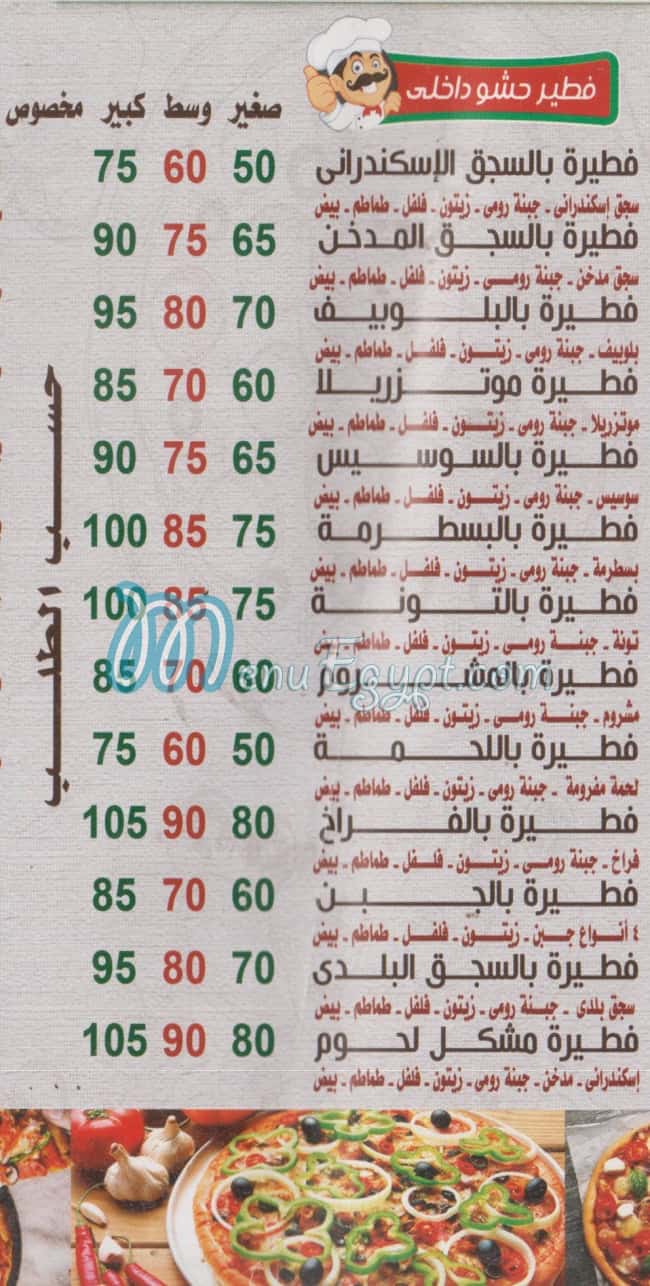 فطير حشو داخلى
صغير وسط كبير مخصوص
فطيرة بالسجق الإسكندرانى 50 60 75
سجق إسكندرانى - جبنة رومى - زيتون - فلفل - طماطم - بيض
فطيرة بالسجق المدخن 65 75 90
سجق مدخن - جبنة رومى - زيتون - فلفل - طماطم - بيض
فطيرة بالبلوبيف 70 80 95
بلوبيف - جبنة رومى - زيتون - فلفل - طماطم - بيض
فطيرة موتزريلا 60 70 85
موتزريلا - جبنة رومى - زيتون - فلفل - طماطم - بيض
فطيرة بالسوسيس 65 75 90
سوسيس - جبنة رومى - زيتون - فلفل - طماطم - بيض
فطيرة بالبسطرمة 75 85 100
بسطرمة - جبنة رومى - زيتون - فلفل - طماطم - بيض
فطيرة بالتونة 75 85 100
تونة - جبنة رومى - زيتون - فلفل - طماطم - بيض
فطيرة بالمشروم 60 70 85
مشروم - جبنة رومى - زيتون - فلفل - طماطم - بيض
فطيرة باللحمة 50 60 75
لحمة مفرومة - جبنة رومى - زيتون - فلفل - طماطم - بيض
فطيرة بالفراخ 80 90 105
فراخ - جبنة رومى - زيتون - فلفل - طماطم - بيض
فطيرة بالجبن 60 70 85
٤ أنواع جبن - زيتون - فلفل - طماطم - بيض
فطيرة بالسجق البلدى 70 80 95
سجق بلدى - جبنة رومى - زيتون - فلفل - طماطم - بيض
فطيرة مشكل لحوم 80 90 105
إسكندرانى - مدخن - جبنة رومى - زيتون - فلفل - طماطم - بيض
حسب الطلب
MenuEgypt.com